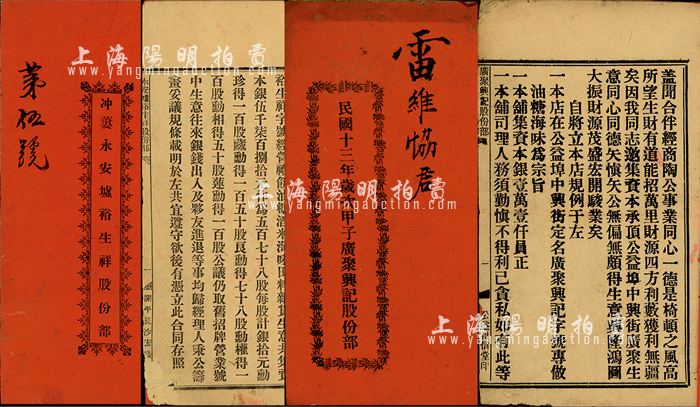 上海陽明拍賣
www.yangmingauction.com
上海陽明拍賣
www.yangmingauction.com
第伍號
冲蔞永安墟裕生祥股份部
本銀伍千柒百捌拾
為五百七十八股每股計銀拾元勳
珍得一百股
勳得一百五十股良勳得七十八股勳權得一
百股勳相得五十股蓮勳得一百股公議仍取舊招牌營業號
中生意往來銀錢出入及夥友進退等事均歸經理人秉公籌
畫妥議規條載明於左共宜遵守欲後有憑立此合同存照
雷維協君
民國十三年歲次甲子廣聚興記股份部
廣聚興記股份部
蓋聞合伴經商陶公事業同心一德是椅頓之風高
所望生財有道能招萬里財源四方利藪獲利無疆
矣因我同志邀集資本承頂公益埠中興街廣聚生
意同心同德矢慎矢公無偏無頗得生意興隆鴻圖
大振財源茂盛宏開駿業矣
自將立本店規例于左
一本店在公益埠中興街定名廣聚興記字號專做
油糖海味為宗旨
一本舖集資本銀壹萬壹仟員正
一本舖司理人務須勤慎不得利己貪私如有此等